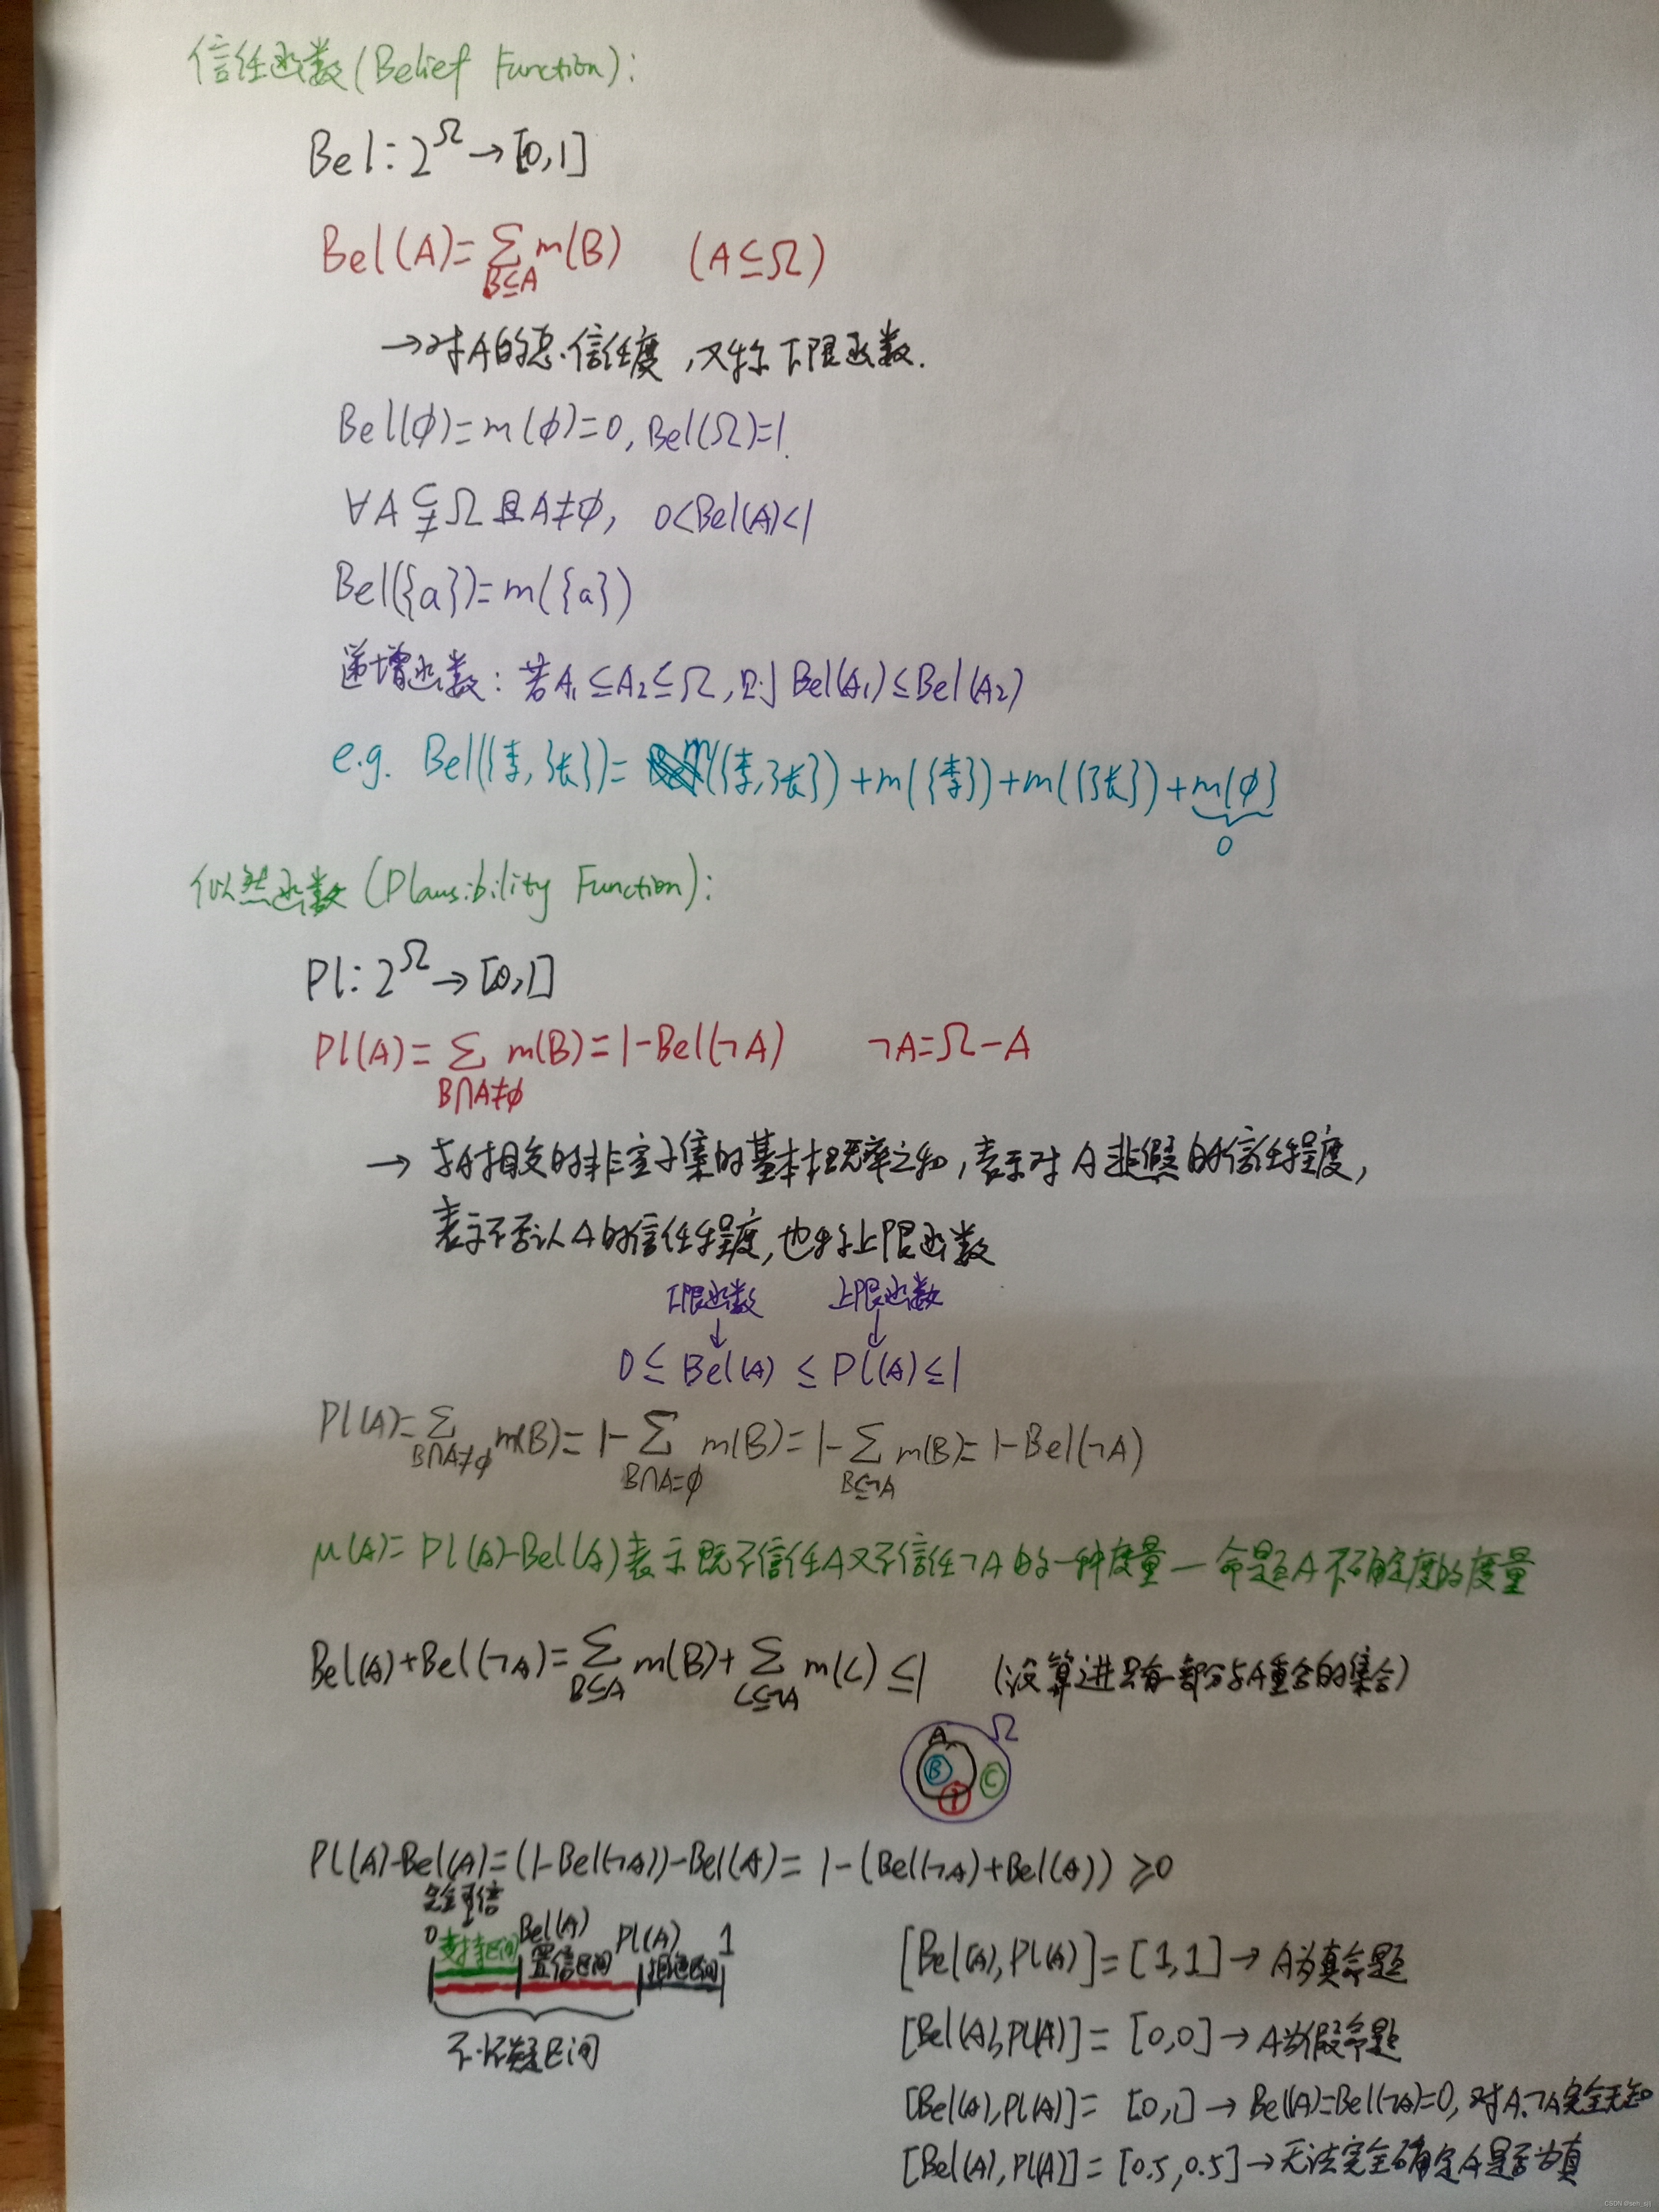 信任函数(Belief Function):
Bel: 2^Ω→[0,1]
Bel(A)=∑_{B⊆A} m(B) (A⊆Ω)
→对A的总信任度,又称下限函数.
Bel(φ)=m(φ)=0, Bel(Ω)=1.
∀A⊊Ω且A≠φ, 0<Bel(A)<1
Bel({a})=m({a})
递增函数:若A₁⊆A₂⊆Ω,则Bel(A₁)≤Bel(A₂)
e.g. Bel({李,张})= m({李,张})+m({李})+m({张})+m(φ)
0
似然函数(Plausibility Function):
Pl: 2^Ω→[0,1]
Pl(A)=∑_{B∩A≠φ} m(B)=1-Bel(¬A) ¬A=Ω-A
→与A相交的非空子集的基本概率之和,表示对A非假的信任程度,
表示不否认A的信任程度,也称上限函数
下限函数 上限函数
↓ ↓
0≤Bel(A)≤Pl(A)≤1
Pl(A)=∑_{B∩A≠φ} m(B)=1-∑_{B∩A=φ} m(B)=1-∑_{B⊆¬A} m(B)=1-Bel(¬A)
μ(A)=Pl(A)-Bel(A)表示既不信任A又不信任¬A的一种度量—命题A不确定度的度量
Bel(A)+Bel(¬A)=∑_{B⊆A} m(B)+∑_{C⊆¬A} m(C)≤1 (没算进只有一部分与A重合的集合)
A Ω
B C
?
Pl(A)-Bel(A)=(1-Bel(¬A))-Bel(A)=1-(Bel(¬A)+Bel(A))≥0
完全可信
0 Bel(A) Pl(A) 1
支持区间 置信区间 拒绝区间
不怀疑区间
[Bel(A),Pl(A)]=[1,1]→A为真命题
[Bel(A),Pl(A)]=[0,0]→A为假命题
[Bel(A),Pl(A)]=[0,1]→Bel(A)=Bel(¬A)=0,对A,¬A完全无知
[Bel(A),Pl(A)]=[0.5,0.5]→无法完全确定A是否为真